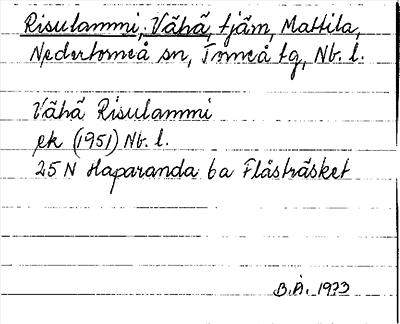 Risulammi, Vähä, tjäm, Mattila,
Nedertorneå sn, Torneå tg, Nb. l.
Vähä Risulammi
ek (1951) Nb. l.
25 N Haparanda 6a Flåsträsket
B.Å. 1973